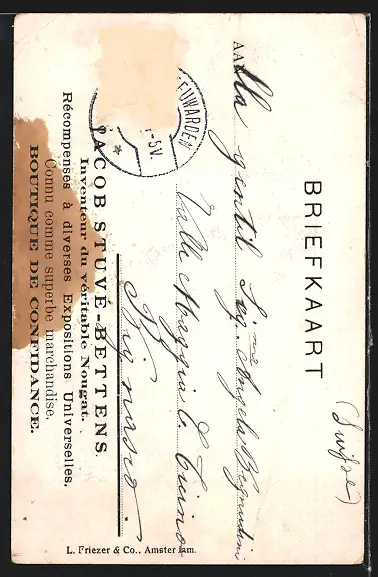 BRIEFKAART
(Suisse)
AAlla gentil Sig.na Angela Bignardini
Valle Maggia C. Ticino
Bignasco.
EEUWARDEN
1-5V.
JACOB STUVE-BETTENS
Inventeur du véritable Nougat.
Récompenses à diverses Expositions Universelles.
Connu comme superbe marchandise.
BOUTIQUE DE CONFIDANCE.
L. Friezer & Co., Amsterdam.